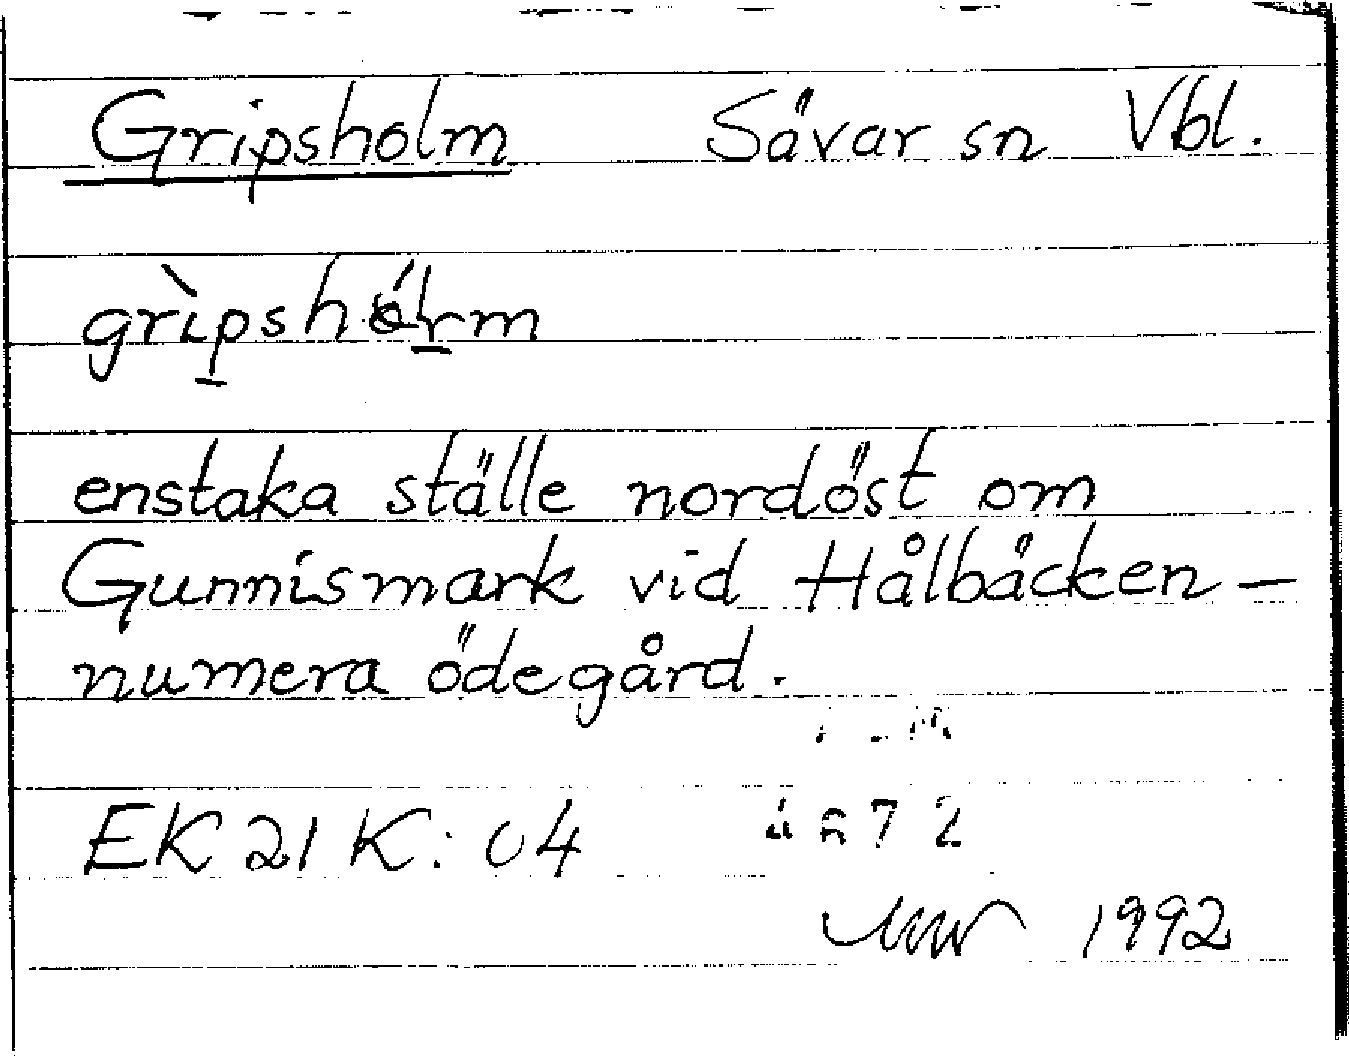 Gripsholm Sävar sn Vbl.
enstaka ställe nordöst om
Gunnismark vid Hålbäcken –
numera ödegård.
EK 21 K: 04
1992